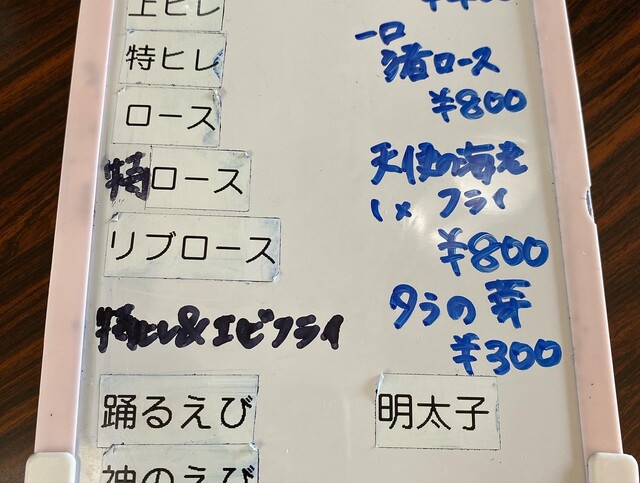 上ヒレ
特ヒレ
ロース
特ロース
リブロース
特ヒレ&エビフライ
踊るえび
神のえび
一口
猪ロース
¥800
天使の海老
1×フライ
¥800
タラの芽
¥300
明太子